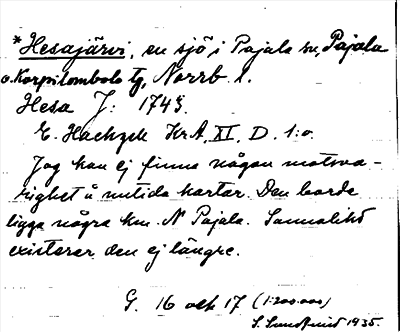 *Hesajärvi, en sjö i Pajala sn, Pajala
o. Korpilombolo tg, Norrb. l.
Hesa J: 1745.
E. Hackzell KrA, XI, D. 1:o.
Jag kan ej finna någon motsva-
righet å nutida kartor. Den borde
ligga några km. N Pajala. Sannolikt
existerar den ej längre.
G. 16 och 17 (1:200.000)
S. 1935.